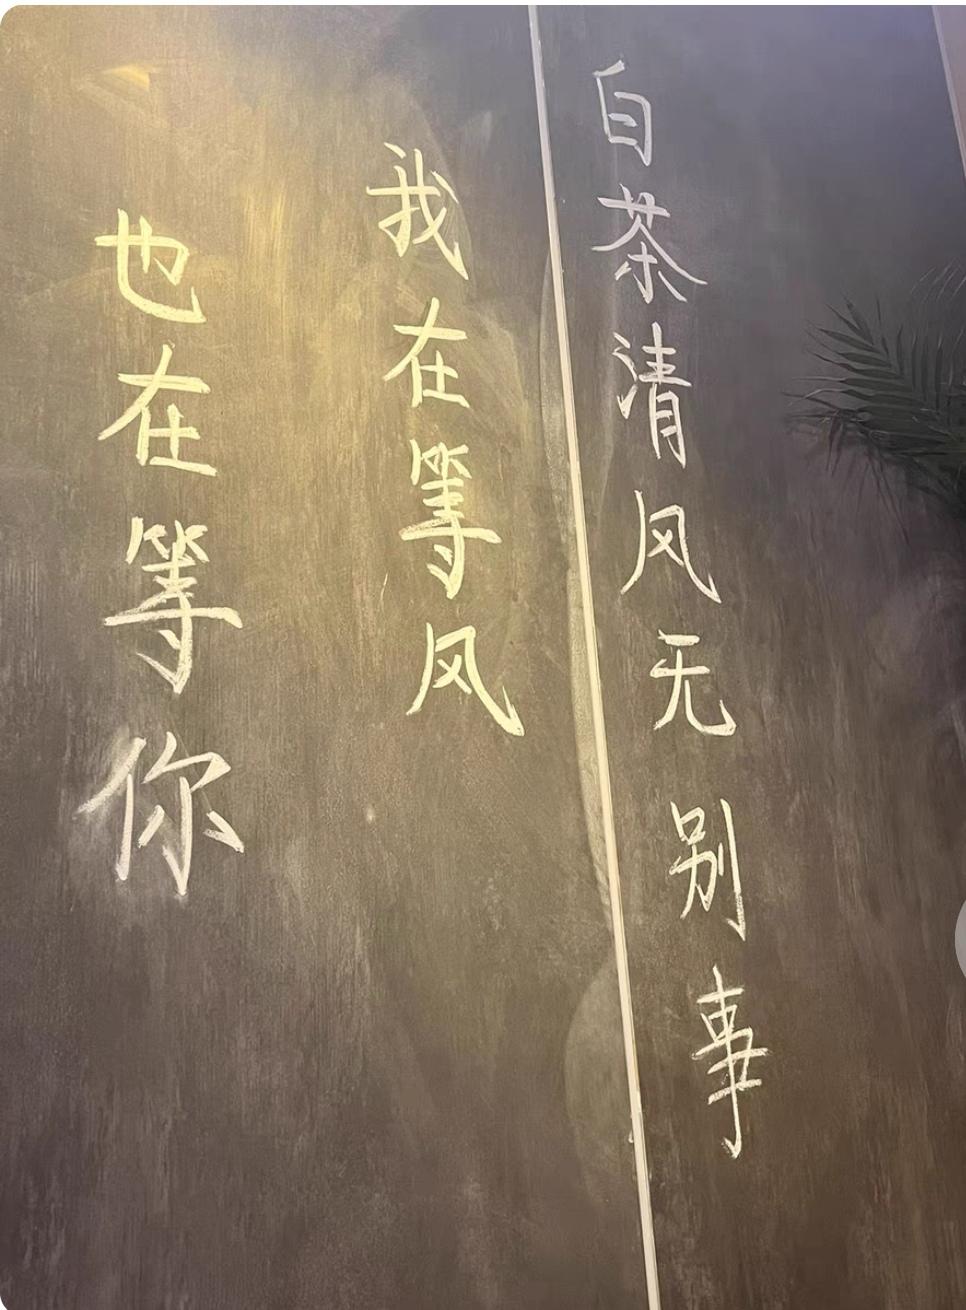 白茶清风无别事
我在等风
也在等你